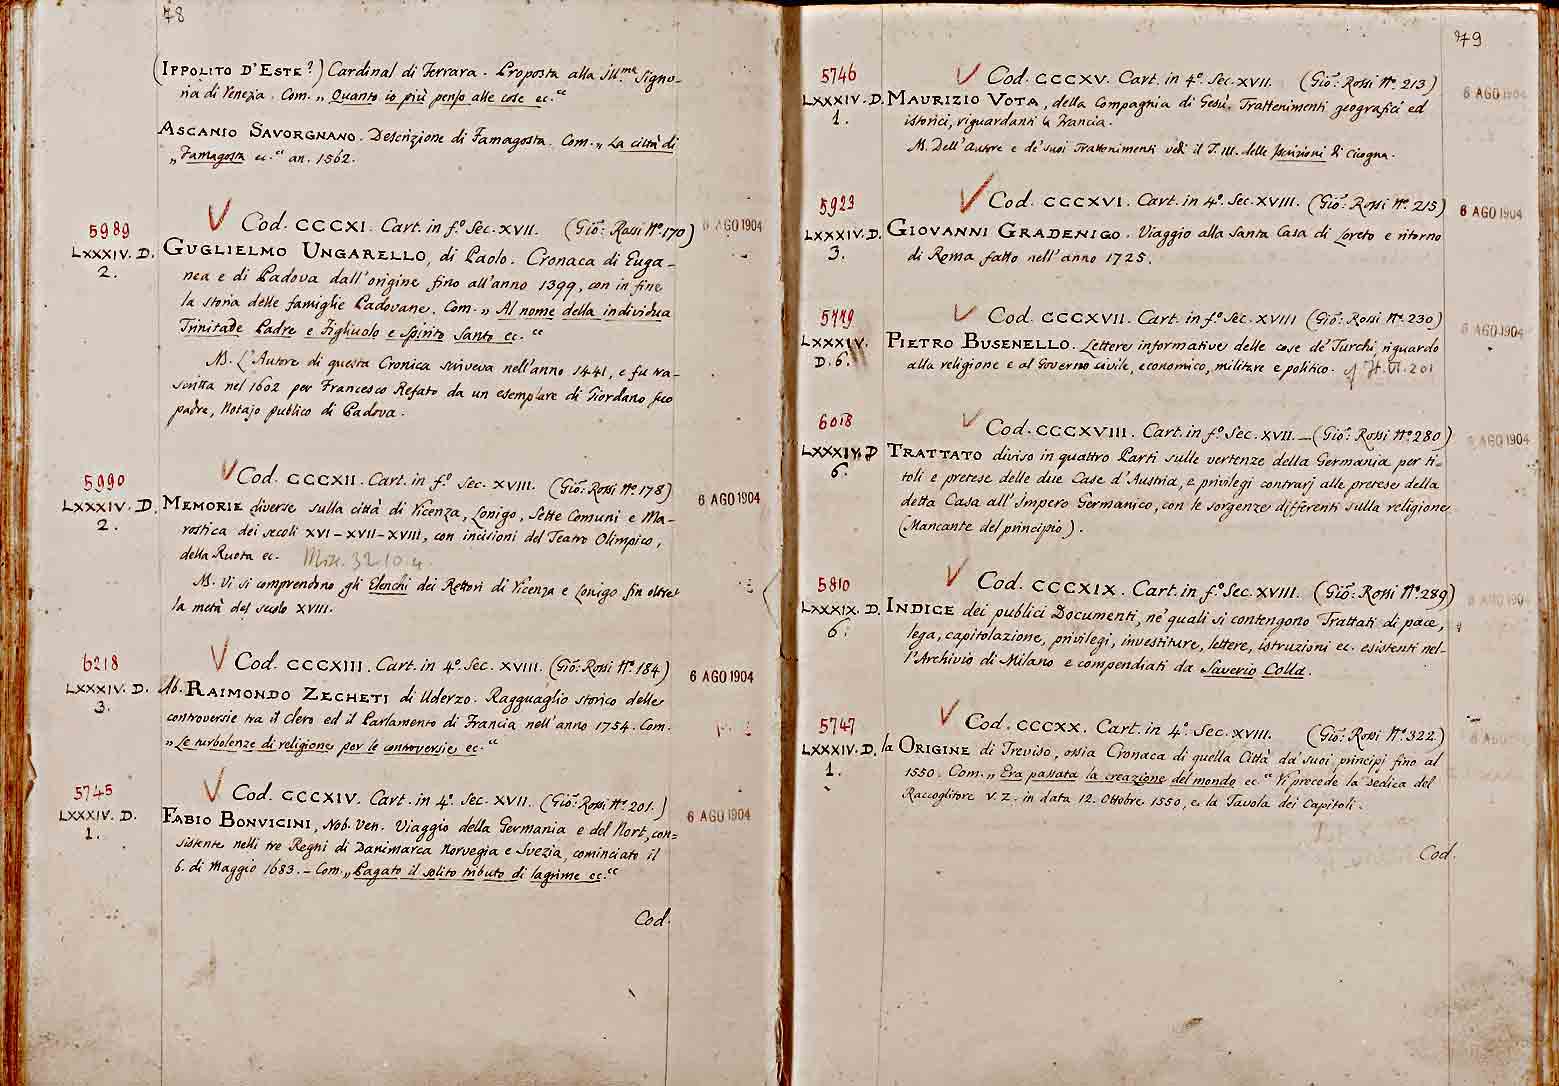 78
(IPPOLITO D'ESTE?) Cardinal di Ferrara. Proposta alla ill.ma Signo-
ria di Venezia. Com. „ Quanto io più penso alle cose ec.“
ASCANIO SAVORGNANO. Descrizione di Famagosta. Com. „ La città di
„ Famagosta ec.“ an. 1562.
5989
LXXXIV. D.
2.
V Cod. CCCXI. Cart. in fº. Sec. XVII. (Gio: Rossi Nº. 170)
6 AGO 1904
GUGLIELMO UNGARELLO, di Paolo. Cronaca di Euga-
nea e di Padova dall'origine fino all'anno 1399, con in fine
la storia delle famiglie Padovane. Com. „ Al nome della individua
Trinitade Padre e Figliuolo e Spirito Santo ec.“
N. L'Autore di questa Cronica scriveva nell'anno 1441, e fu tra-
scritta nel 1602 per Francesco Refato da un esemplare di Giordano suo
padre, Notajo publico di Padova.
5990
LXXXIV. D.
2.
V Cod. CCCXII. Cart. in fº. Sec. XVIII. (Gio: Rossi Nº 178)
6 AGO 1904
MEMORIE diverse sulla città di Vicenza, Lonigo, Sette Comuni e Ma-
rostica dei secoli XVI-XVII-XVIII, con incisioni del Teatro Olimpico,
della Ruota ec.
N. Vi si comprendono gli Elenchi dei Rettori di Vicenza e Lonigo fin oltre
la metà del secolo XVIII.
6218
LXXXIV. D.
3.
V Cod. CCCXIII. Cart. in 4º. Sec. XVIII. (Gio: Rossi Nº 184)
6 AGO 1904
Ab. RAIMONDO ZECHETI di Uderzo. Ragguaglio storico delle
controversie tra il Clero ed il Parlamento di Francia nell'anno 1754. Com.
„ Le turbolenze di religione per le controversie ec.“
5745
LXXXIV. D.
1.
V Cod. CCCXIV. Cart. in 4º. Sec. XVII. (Gio: Rossi Nº 201.)
6 AGO 1904
FABIO BONVICINI, Nob. Ven. Viaggio della Germania e del Nort, con-
sistente nelli tre Regni di Danimarca Norvegia e Svezia, cominciato il
6. di Maggio 1683. – Com. „ Pagato il solito tributo di lagrime ec.“
Cod.
79
5746
LXXXIV. D.
1.
V Cod. CCCXV. Cart. in 4º. Sec. XVII. (Gio: Rossi Nº. 213)
6 AGO 1904
MAURIZIO VOTA, della Compagnia di Gesù. Trattenimenti geografici ed
istorici, riguardanti la Francia.
N. Dell'Autore e de' suoi Trattenimenti vedi il T. III. delle Iscrizioni di Cicogna.
5923
LXXXIV. D.
3.
V Cod. CCCXVI. Cart. in 4º. Sec. XVIII. (Gio: Rossi Nº. 215)
6 AGO 1904
GIOVANNI GRADENIGO. Viaggio alla Santa Casa di Loreto e ritorno
di Roma fatto nell'anno 1725.
5779
LXXXIV.
D. 6.
V Cod. CCCXVII. Cart. in fº. Sec. XVIII (Gio: Rossi Nº. 230)
6 AGO 1904
PIETRO BUSENELLO. Lettere informative delle cose de' Turchi, riguardo
alla religione e al Governo civile, economico, militare e politico. cf It. VI. 201
6018
LXXXIV. D
6.
V Cod. CCCXVIII. Cart. in fº. Sec. XVII. – (Gio: Rossi Nº 280)
6 AGO 1904
TRATTATO diviso in quattro Parti sulle vertenze della Germania per ti-
toli e pretese delle due Case d'Austria, e privilegi contrarj alle pretese della
detta Casa all'Impero Germanico, con le sorgenze differenti sulla religione
(Mancante del principio).
5810
LXXXIX. D.
6.
V Cod. CCCXIX. Cart. in fº. Sec. XVIII. (Gio: Rossi Nº 289)
6 AGO 1904
INDICE dei publici Documenti, ne' quali si contengono Trattati di pace,
lega, capitolazione, privilegi, investiture, lettere, istruzioni ec. esistenti nel-
l'Archivio di Milano e compendiati da Saverio Colla.
5747
LXXXIV. D.
1.
V Cod. CCCXX. Cart. in 4º. Sec. XVIII. (Gio: Rossi Nº. 322)
la ORIGINE di Treviso, ossia Cronaca di quella Città da' suoi principj fino al
1550. Com. „ Era passata la creazione del mondo ec.“ Vi precede la dedica del
Raccoglitore V. Z. in data 12. Ottobre 1550, e la Tavola dei Capitoli.
Cod.